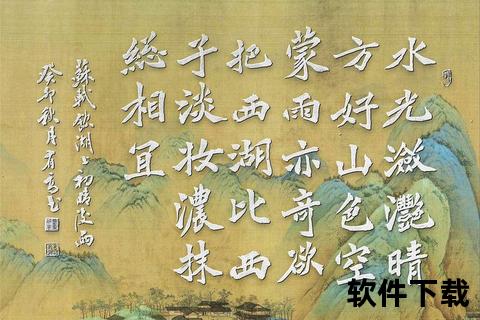 水光潋灩晴
方好山色空
蒙雨亦奇欲
把西湖比西
子淡妆濃抹
總相宜
蘇軾飲湖上初晴後雨
癸卯秋月
软件下载